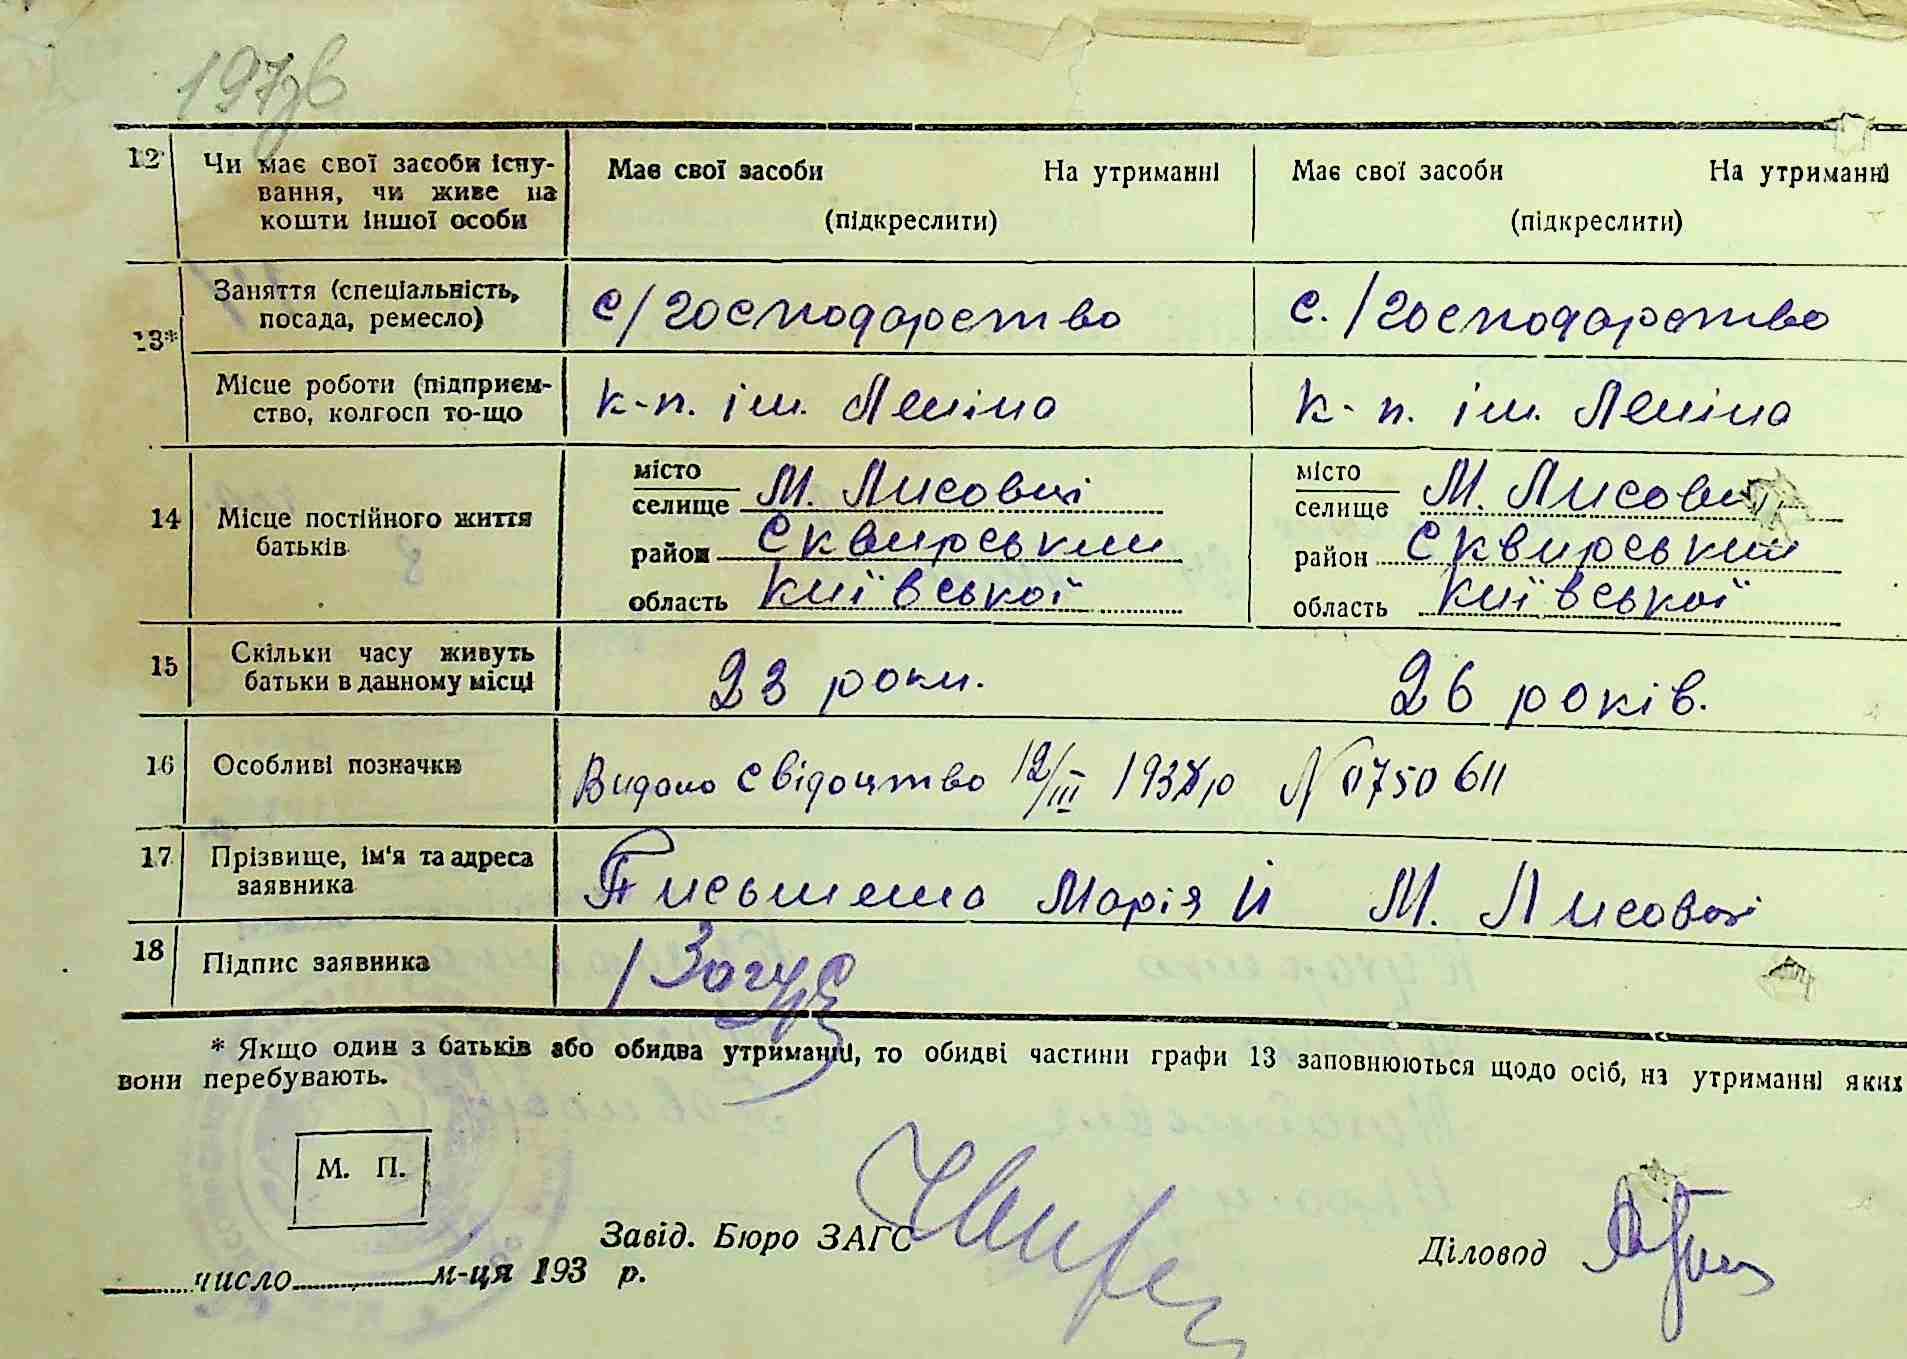 197зв
12 Чи має свої засоби існу-
вання, чи живе на
кошти іншої особи
Має свої засоби На утриманні
(підкреслити)
Має свої засоби На утриманні
(підкреслити)
13*
Заняття (спеціальність,
посада, ремесло)
с/господарство
с./господарство
Місце роботи (підприєм-
ство, колгосп то-що
к-п. ім. Леніна
к-п. ім. Леніна
14 Місце постійного життя
батьків
місто
селище М. Лисовці
район Сквирський
область Київської
місто
селище М. Лисовці
район Сквирський
область Київської
15 Скільки часу живуть
батьки в данному місці
23 роки.
26 років.
16 Особливі позначки
Видано свідоцтво 12/III 1938р N 0750611
17 Прізвище, ім'я та адреса
заявника
Письмена Марія Й М. Лисовці
18 Підпис заявника
* Якщо один з батьків або обидва утриманці, то обидві частини графи 13 заповнюються щодо осіб, на утриманні яких
вони перебувають.
М. П.
Завід. Бюро ЗАГС
Діловод
число м-ця 193 р.